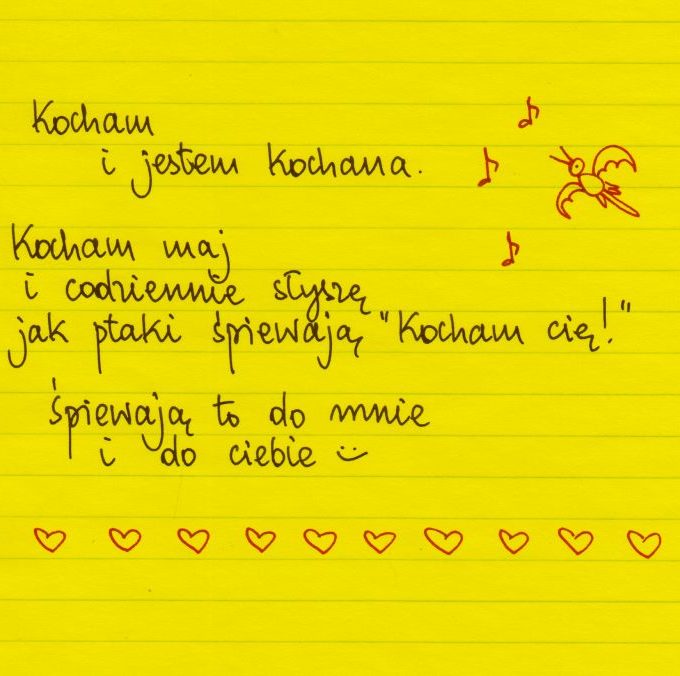 Kocham
i jestem kochana.
Kocham maj
i codziennie słyszę
jak ptaki śpiewają "Kocham cię!"
śpiewają to do mnie
i do ciebie :)